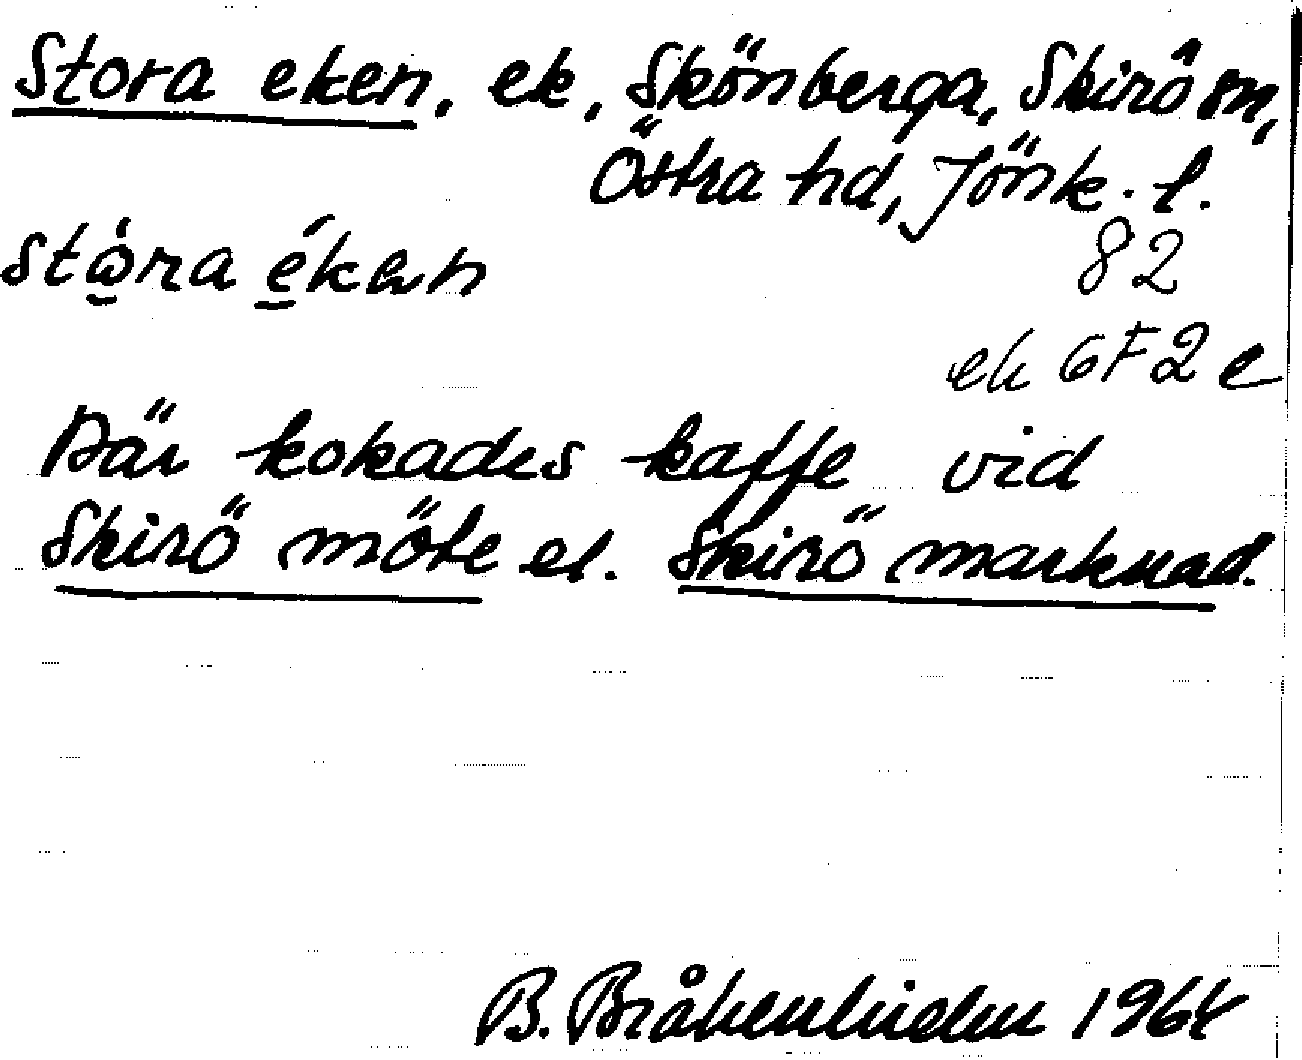 Stora eken, ek, Skönberga, Skirö sn,
Östra hd, Jönk. l.
82
ek 6F2e
Där kokades kaffe vid
Skirö möte el. Skirö marknad.
B. 1964